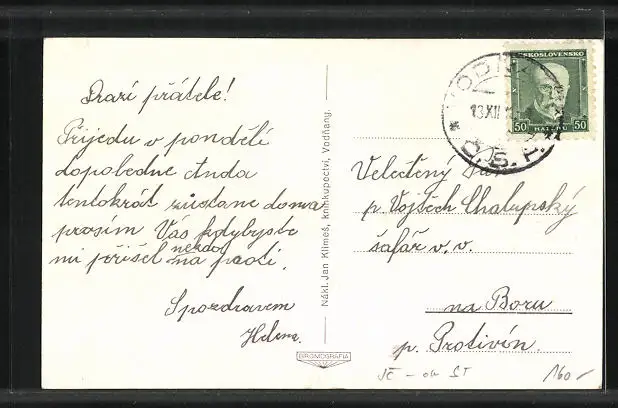 Drazí přátele!
Přijedu v pondělí
dopoledne Anda
tentokrát zůstane doma
prosím Vás kdybyste
mi přišel naproti.
někdo
S pozdravem
Helena
Nákl. Jan Klimeš, knihkupectví, Vodňany.
BROMOGRAFIA
ČESKOSLOVENSKO
50 HALÉŘŮ 50
VODŇA
13.XII
Č.S.P.
Velectěný Pan
p Vojtěch Chalupský
šafář v. v.
na Boru
p. Protivín.
VČ - ok ST
160,-